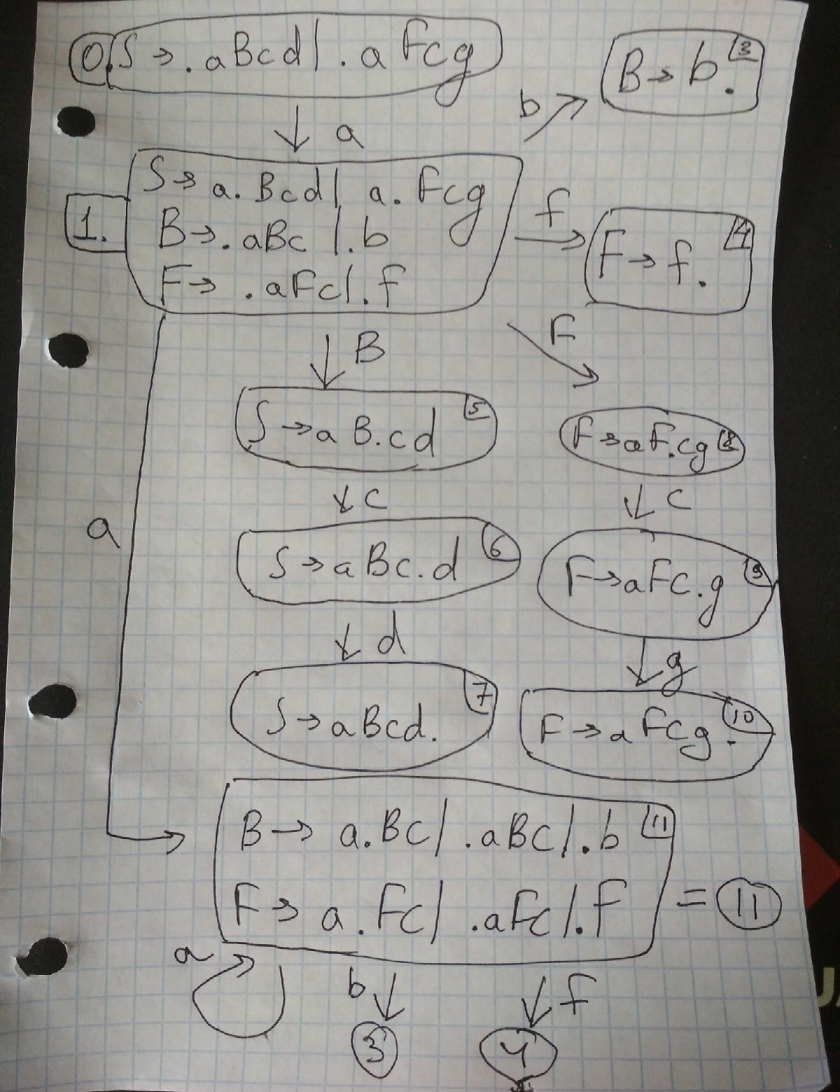 0. S → .aBcd | .aFcg
b
B → b. 3
a
1. S → a.Bcd | a.Fcg
B → .aBc | .b
F → .aFc | .f
f
F → f. 4
B
F
S → aB.cd 5
F → aF.cg 8
c
c
a
S → aBc.d 6
F → aFc.g 9
d
g
S → aBcd. 7
F → aFcg. 10
B → a.Bc | .aBc | .b 11
F → a.Fc | .aFc | .F = 11
a
b
f
3
4